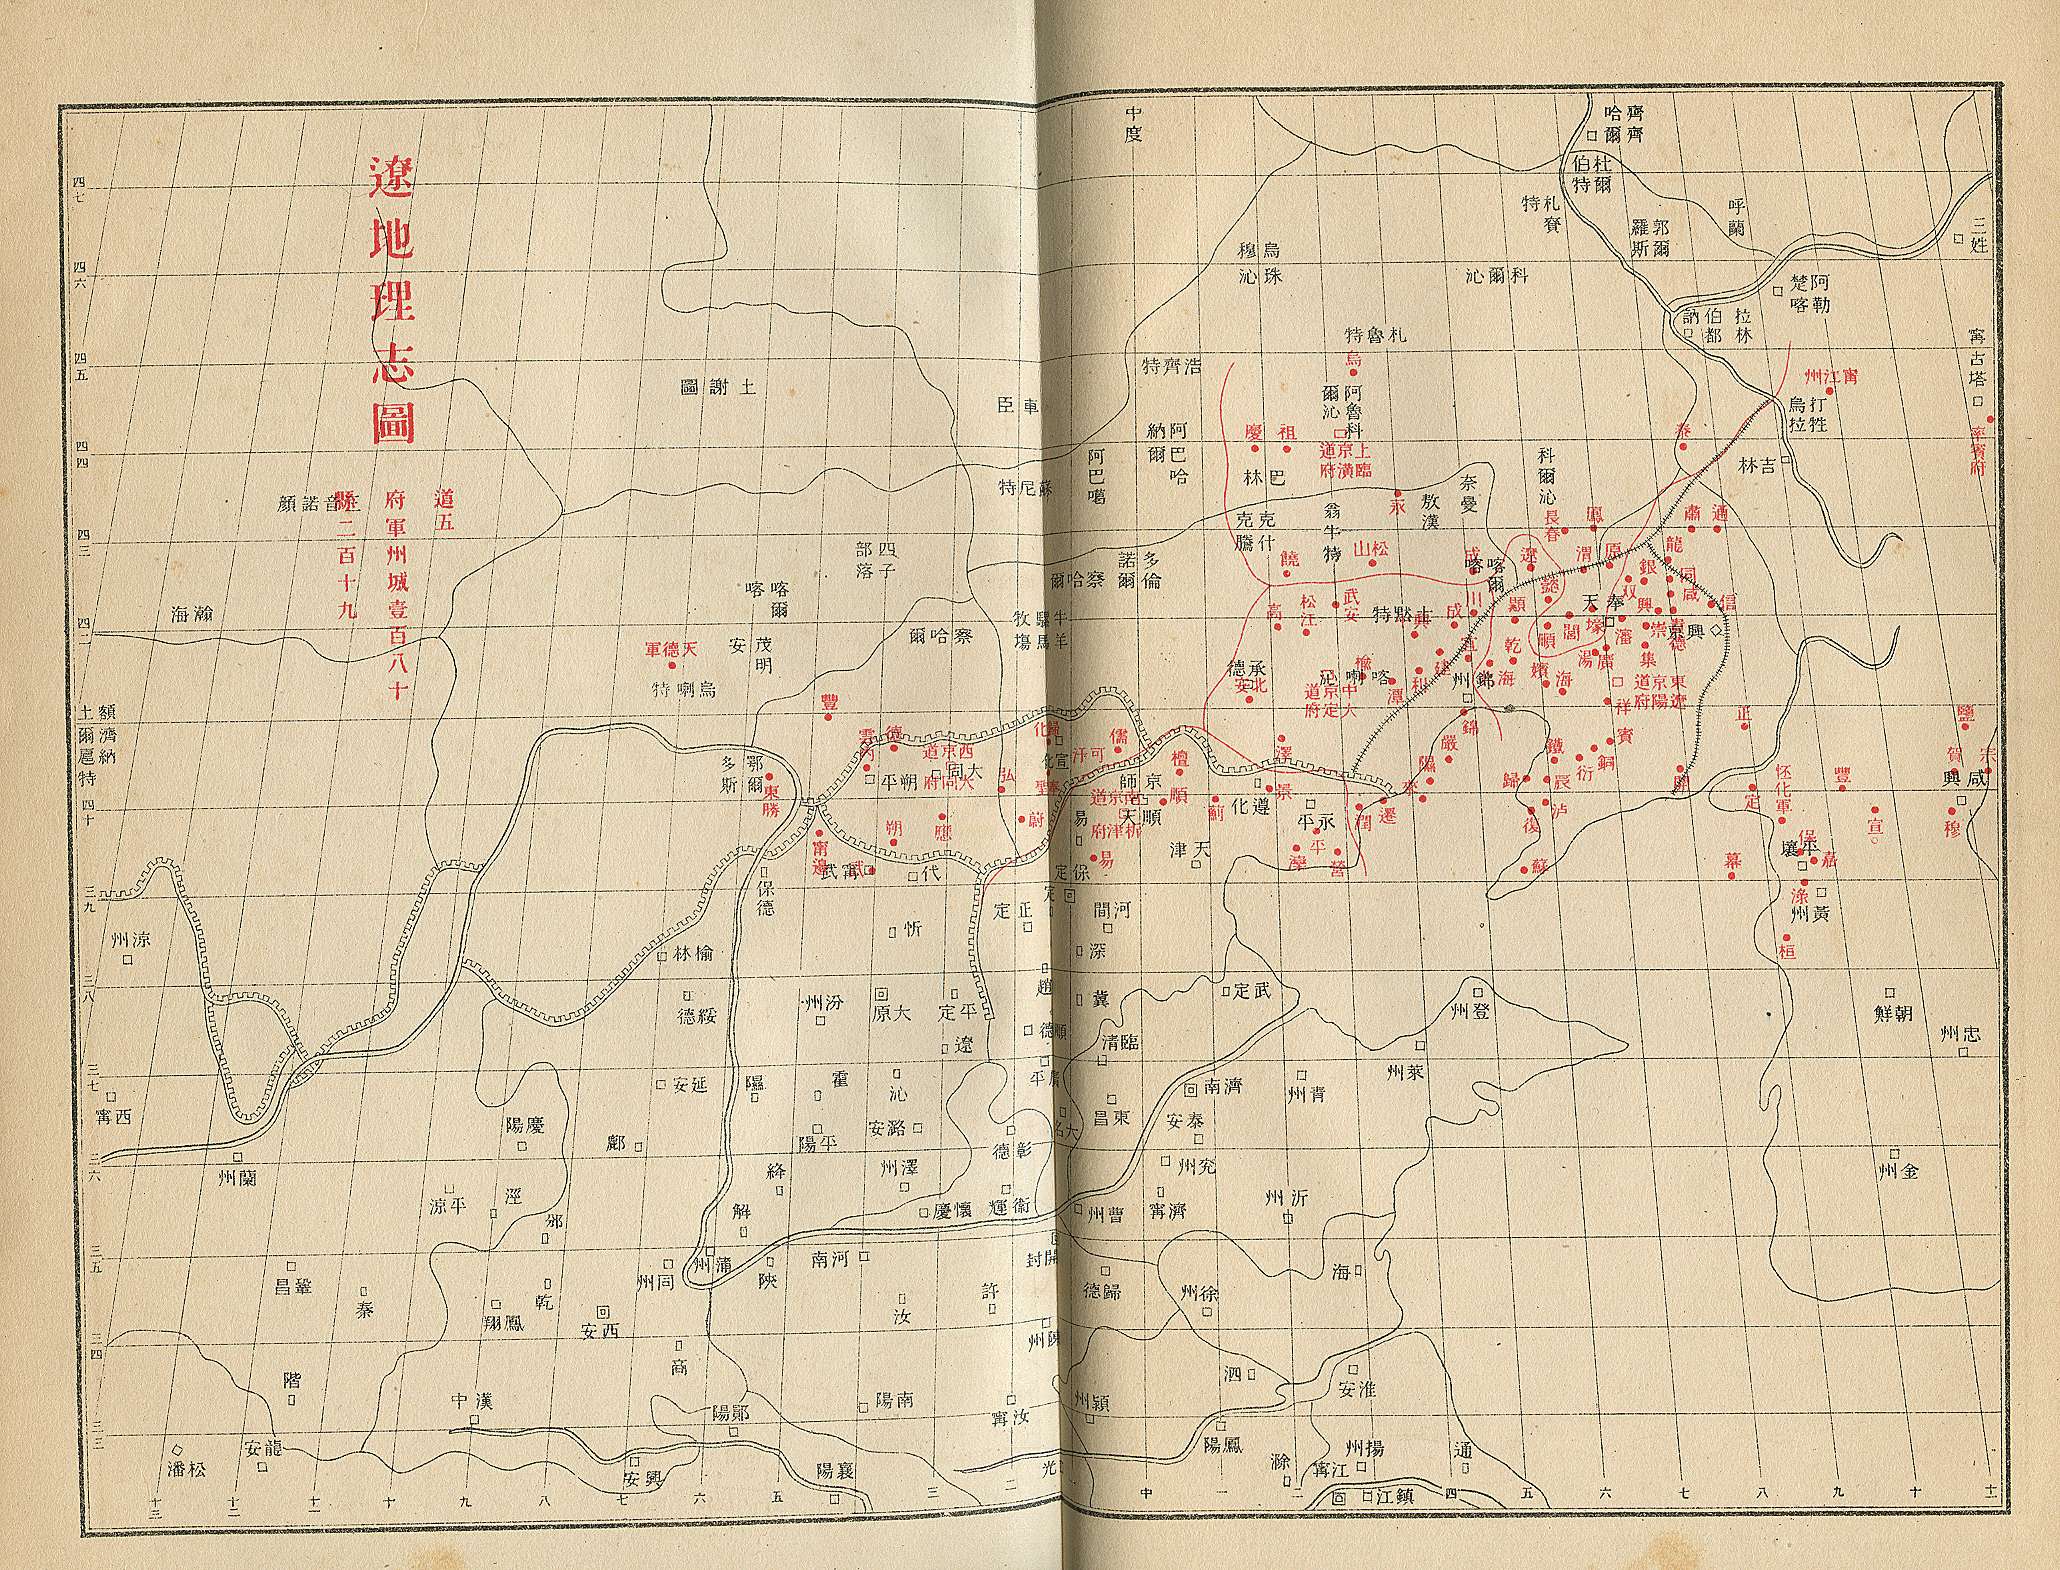 遼地理志圖
道五
府軍州城壹百八十
縣二百十九
中度
齊齊哈爾
杜爾伯特
札賚特
郭爾羅斯
呼蘭
三姓
烏珠穆沁
科爾沁
阿勒楚喀
拉林
伯都訥
寗古塔
札魯特
烏
浩齊特
土謝圖
車臣
阿魯科爾沁
寗江州
打牲烏拉
率賓府
吉林
泰
慶
祖
上京臨潢府道
巴林
阿巴哈納爾
阿巴噶
蘇尼特
科爾沁
奈曼
敖漢
永
翁牛特
克什克騰
長春
鳳
肅
通
四子部落
多倫諾爾
察哈爾
饒
松山
遼
渭
原
龍
銀
同
咸
信
雙
興
喀爾喀
瀚海
茂明安
察哈爾
高
松江
武安
土默特
川
成
顯
懿
奉天
興京
瀋
崇
集
順
閭
壕
天德軍
烏喇特
承德
北安
中京大定府道
喀喇沁
榆
潭
利
建
宜
興
乾
海
嬪
海
湯
廣
東京遼陽府道
錦州
錦
嚴
隰
來
祥
賓
銅
衍
鐵
歸
辰
復
蘇
開
正
定
鹽
賀
宗
咸興
穆
豐
宣
懷化軍
保
嘉
平壤
幕
黃州
桓
額濟納土爾扈特
豐
雲內
德
西京大同府道
大同
朔平
鄂爾多斯
東勝
朔
應
弘
蔚
寗邊
武
寗武
代
保德
歸化
宣化
奉聖
可汗
儒
檀
順
南京析津府道
京師順天
易
易
薊
景
澤
遵化
永平
平
灤
營
潤
遷
天津
保定
正定
忻
河間
深
冀
趙
順德
廣平
大名
臨清
武定
登州
萊州
青州
濟南
泰安
東昌
兗州
沂州
濟寗
曹州
朝鮮
忠州
金州
涼州
西寗
蘭州
榆林
綏德
汾州
大原
平定
遼
延安
隰
霍
沁
慶陽
鄜
平陽
潞安
彰德
澤州
絳
平涼
涇
邠
解
懷慶
衛輝
蒲州
同州
陝
河南
開封
鞏昌
秦
鳳翔
乾
西安
商
汝
許
陳州
歸德
徐州
海
泗
淮安
階
漢中
鄖陽
南陽
汝寗
潁州
松潘
龍安
興安
襄陽
光
鳳陽
滁
揚州
通
江寗
鎮江
四七
四六
四五
四四
四三
四二
四十
三九
三八
三七
三六
三五
三四
三三
十三
十二
十一
十
九
八
七
六
五
三
二
中
一
二
四
五
六
七
八
九
十
十一